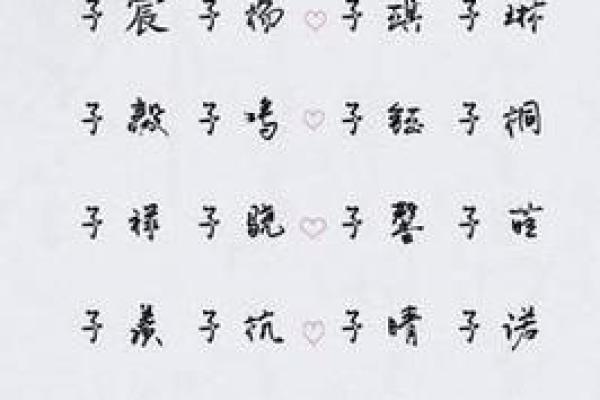 子宸 子杨 ♡ 子琪 子琳
子毅 子鸣 ♡ 子钰 子桐
子禄 子骁 ♡ 子馨 子萱
子羲 子航 ♡ 子晴 子诺